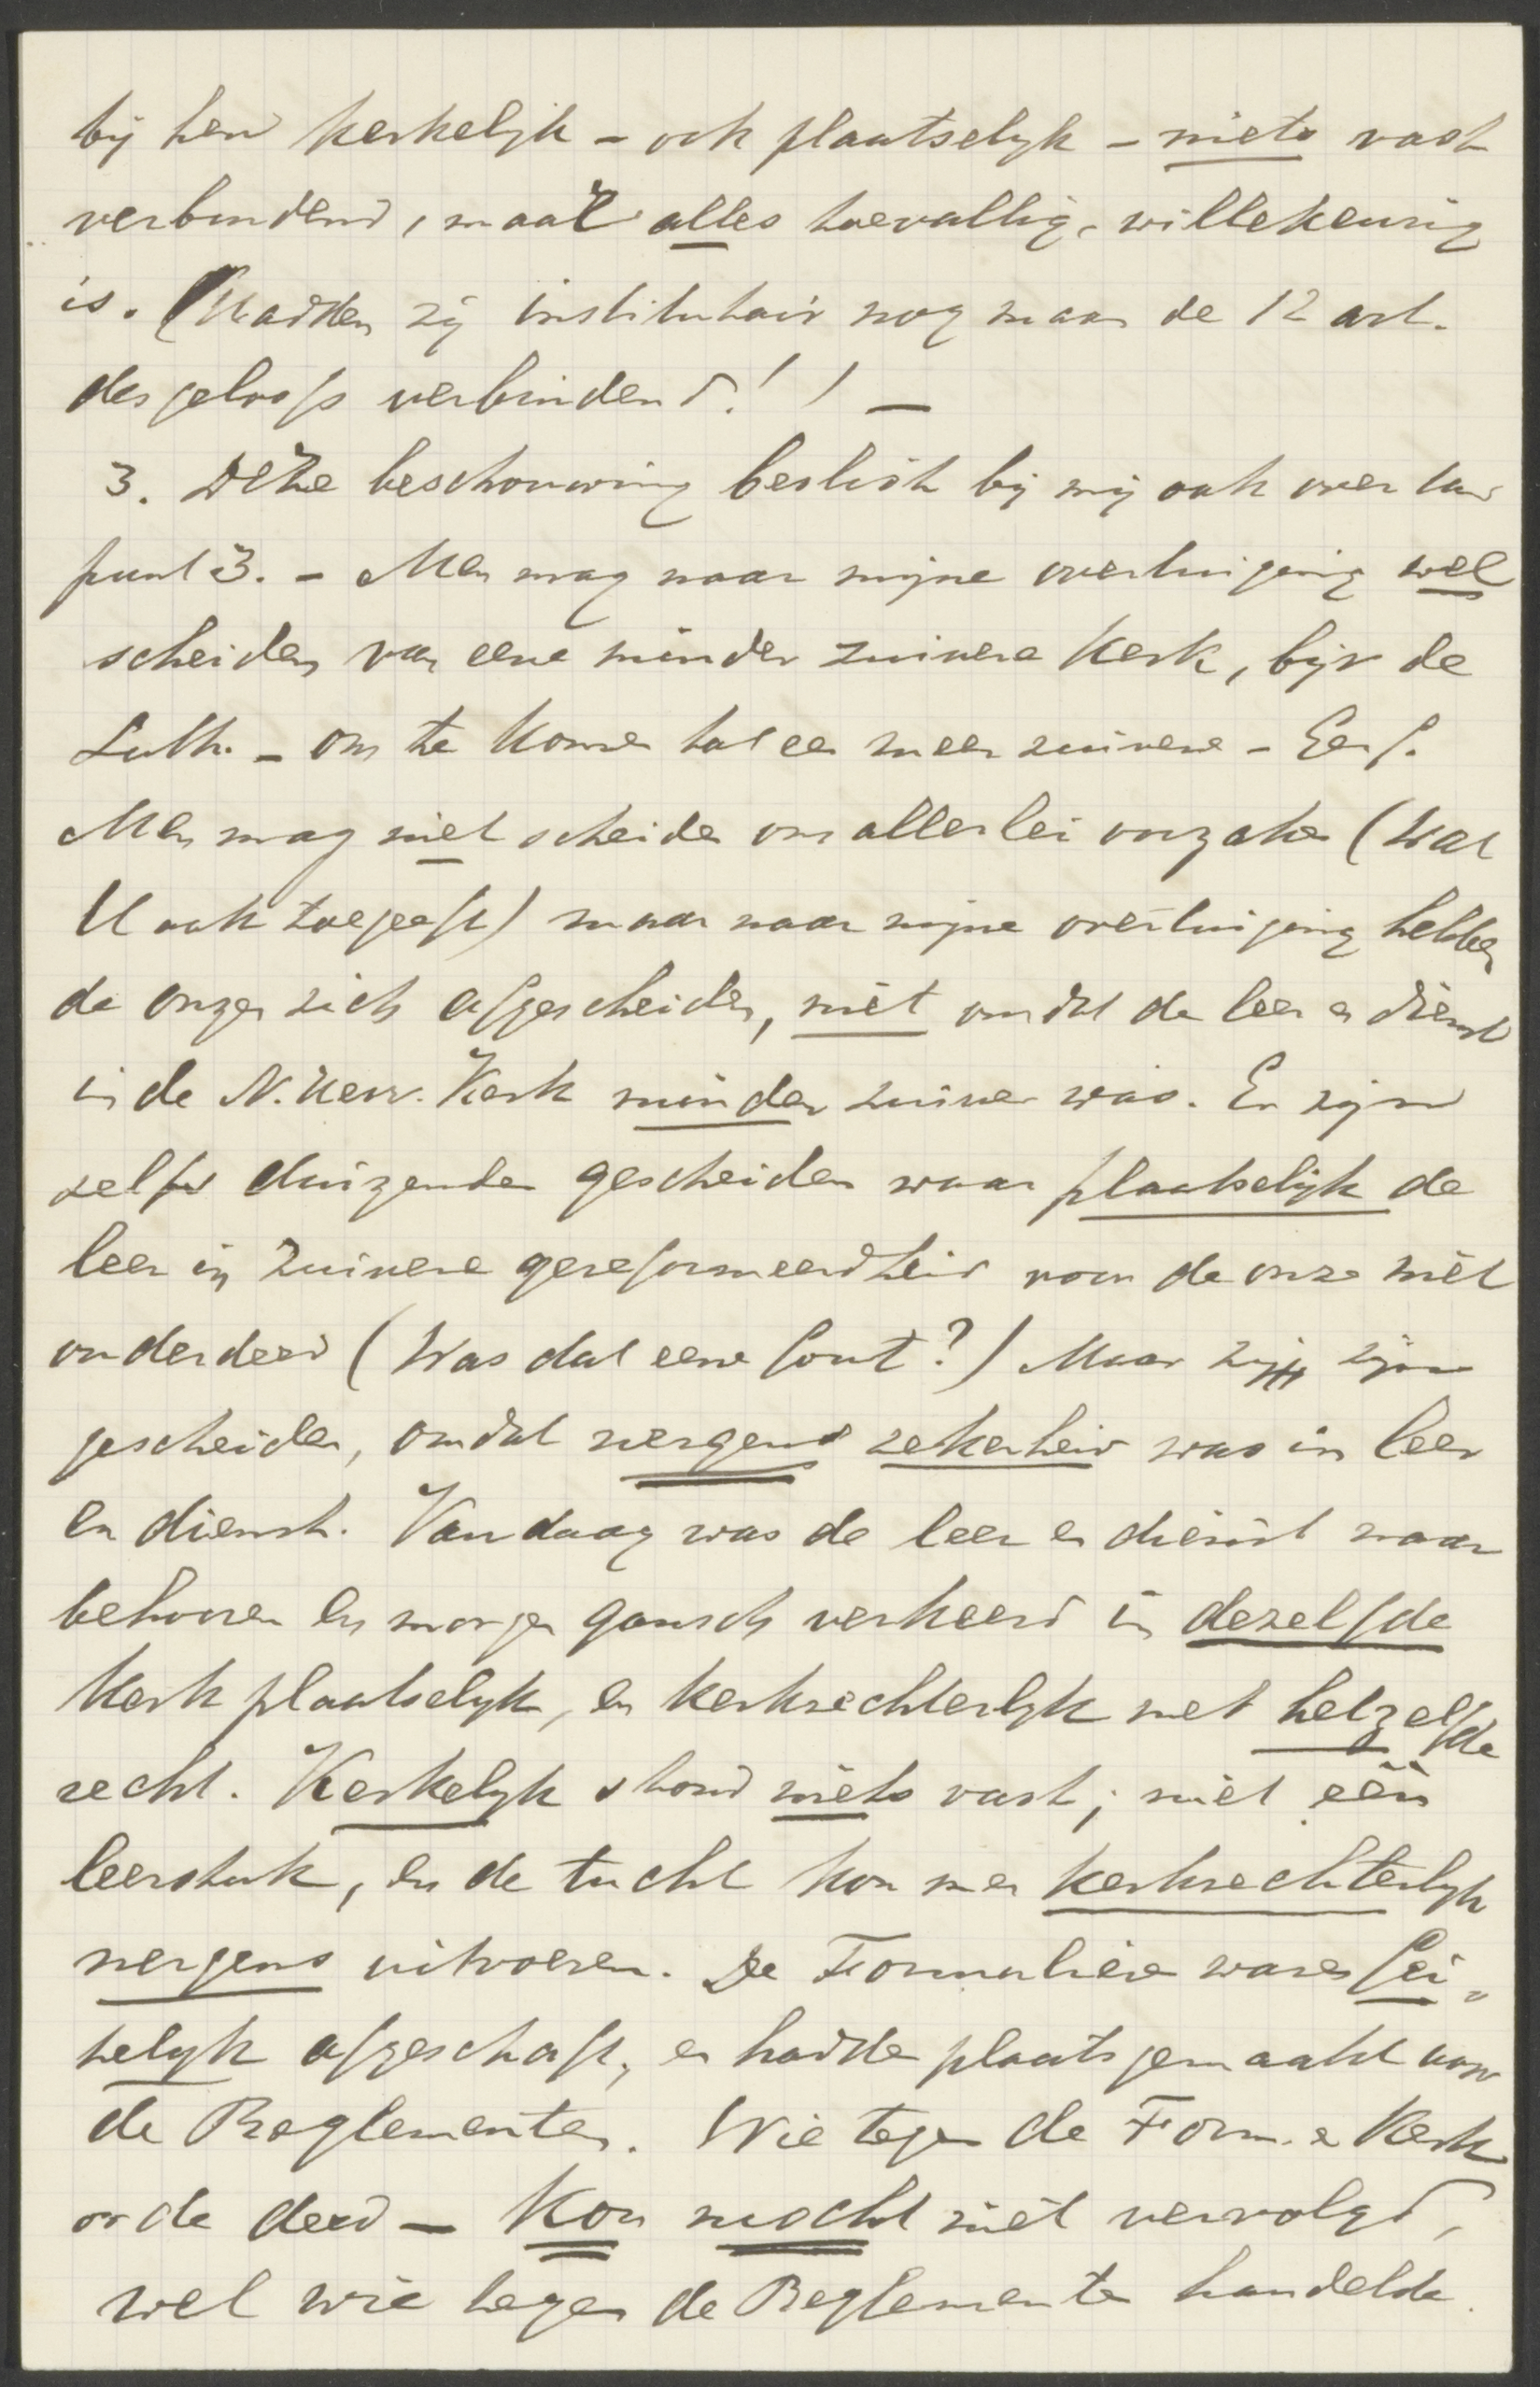 bij hen kerkelijk – ook plaatselijk – niets vast
verbindend, maar alles toevallig, willekeurig
is. (Hadden zij institutair nog maar de 12 art.
des geloofs verbindend!) –
3. Deze beschouwing beslist bij mij ook over uw
punt 3. – Men mag naar mijne overtuiging wel
scheiden van eene minder zuivere Kerk, bijv de
Luth. – om te komen tot een meer zuivere – Geref.
Men mag niet scheiden om allerlei oorzaken (wat
U ook toegeeft) maar naar mijne overtuiging hebben
de onzen zich afgescheiden, niet omdat de leer en dienst
in de N. Herv. Kerk minder zuiver was. Er zijn
zelfs duizenden gescheiden waar plaatselijk de
leer in zuivere gereformeerdheid voor de onze niet
onderdeed (Was dat eene fout?) Maar zij zijn
gescheiden, omdat nergens zekerheid was in leer
en dienst. Vandaag was de leer en dienst naar
behooren en morgen gansch verkeerd in dezelfde
Kerk plaatselijk, en kerkrechterlijk met hetzelfde
recht. Kerkelijk stond niets vast; niet één
leerstuk, en de tucht kon men kerkrechterlijk
nergens uitvoeren. De Formulieren waren fei-
telijk afgeschaft, en hadden plaats gemaakt voor
de Reglementen. Wie tegen de Form. en Kerk
orde deed – kon mocht niet vervolgd,
wel wie tegen de Reglementen handelde.